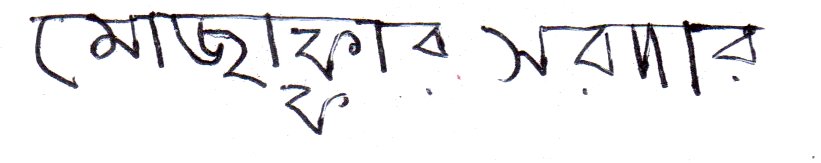 মোজাফ্ফার সরদার